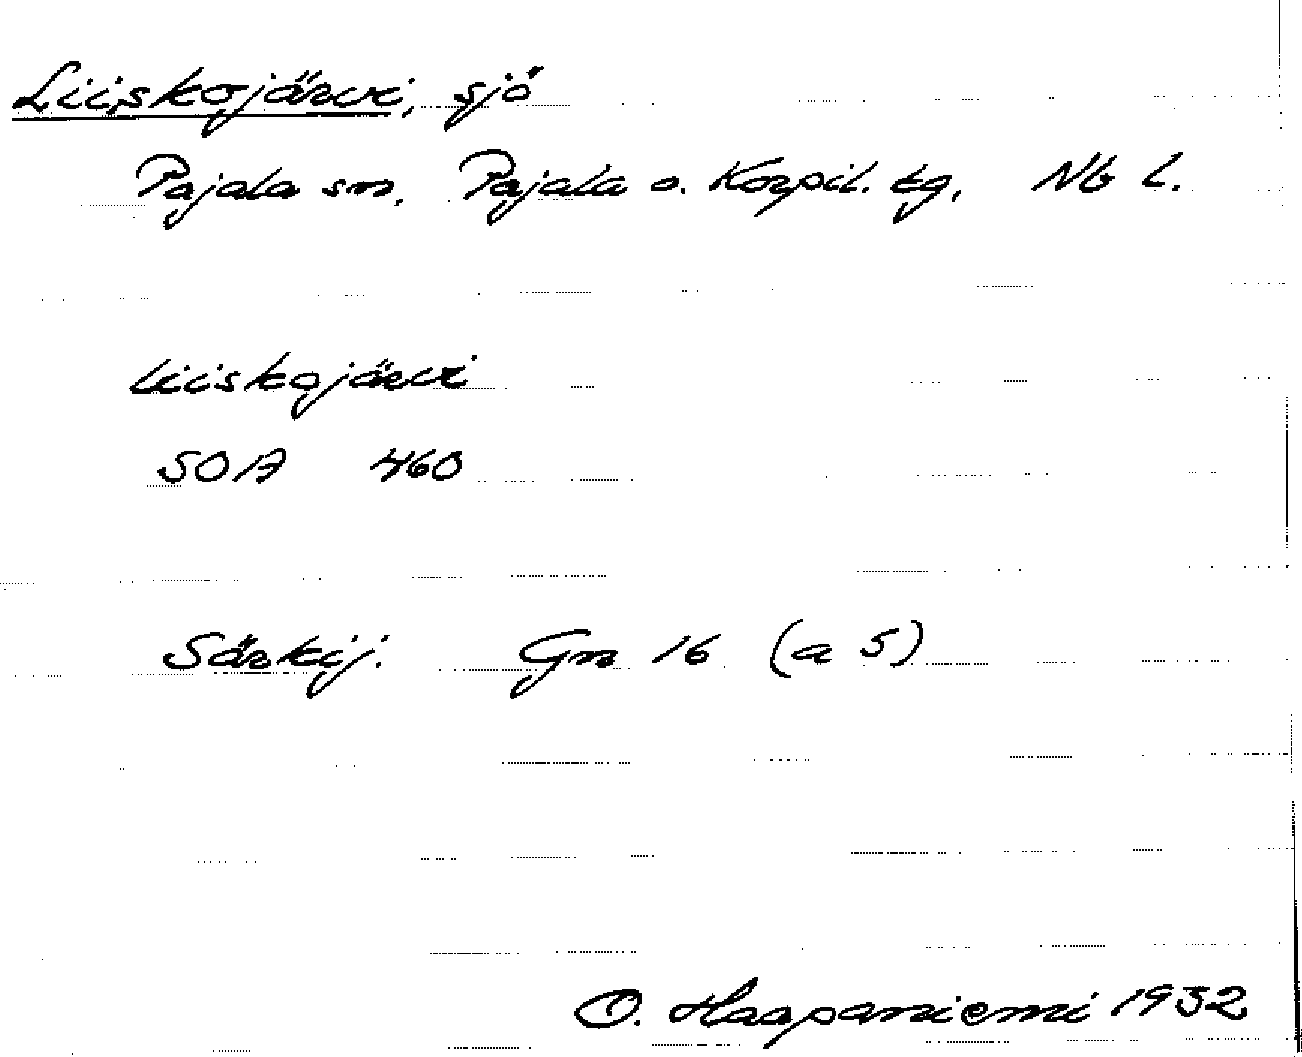 Liiskojärvi, sjö
Pajala sn, Pajala o. Korpil. tg, Nb l.
Liiskojärvi
SOA 460
Särkij. Gm 16 (a 5)
O. Haapaniemi 1932